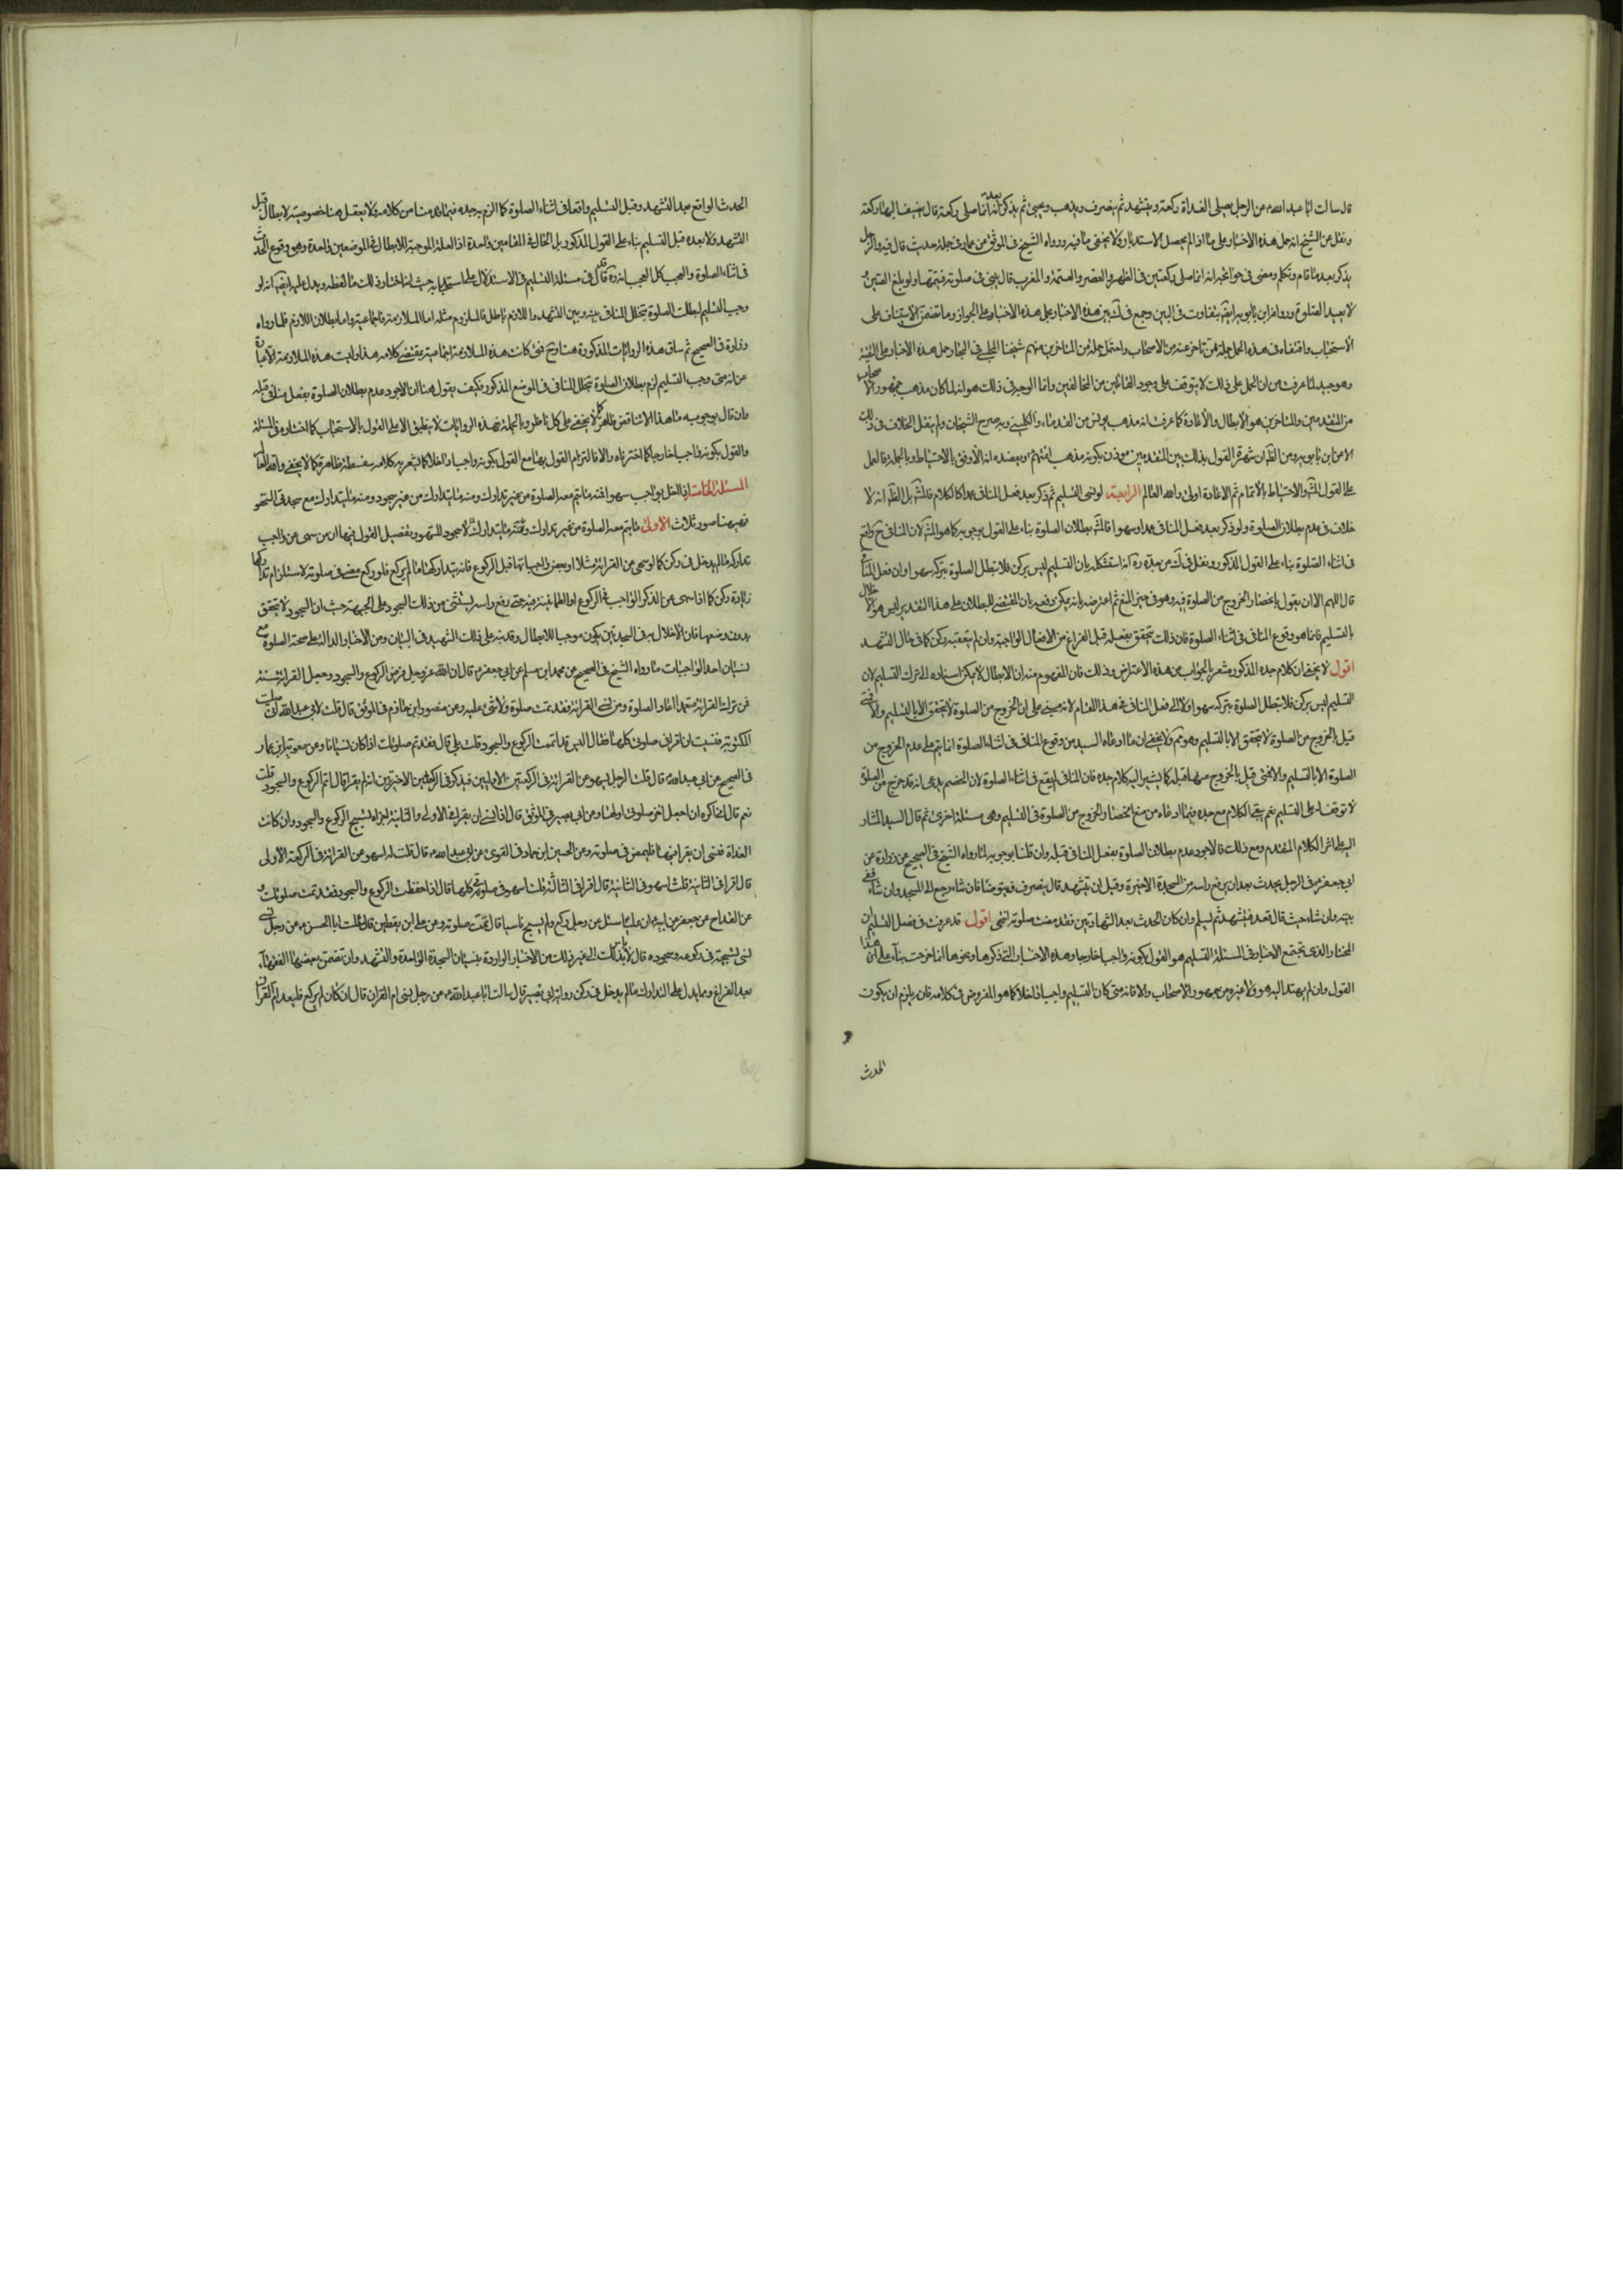 قال سالت ابا عبد الله ع عن الرجل يصلى الغداة ركعة ويتشهد ثم ينصرف ويذهب ويجئ ثم يذكر بعد انه انما صلى ركعة قال يضيف اليها ركعة
ونقل عن الشيخ انه حمل هذه الاخبار على ما اذا لم يحصل الاستدبار ولا يخفى ما فيه وروواه الشيخ فى الموثق عن عمار فى جملة حديث قال فيه والرجل
يذكر بعد ما قام وتكلم ومضى فى حوائجه انه انما صلى ركعتين فى الظهر والعصر والعتمة والمغرب قال يبنى على صلوته فيتمها ولو بلغ الصين و
لا يعيد الصلوة ورواه ابن بابويه ايضا بتفاوت فى البين وجمع فى ك بين هذه الاخبار بحمل هذه الاخبار على الجواز وما تضمن الاستيناف على
الاستحباب واقتفاه فى هذه الحمل جملة ممن تاخر عنه من الاصحاب واحتمل جملة من المتاخرين منهم شيخنا المجلسى فى البحار حمل هذه الاخبار على التقية
وهو جيد لما عرفت من ان الحمل على ذلك لا يتوقف على وجود القائلين من المخالفين وانما الوجه فى ذلك هو انه لما كان مذهب جمهور الاصحاب
من المتقدمين والمتاخرين هو الابطال والاعادة كما عرفت انه مذهب يونس من القدماء والكلينى وبه صرح الشيخان ولم ينقل الخلاف فى ذلك
الا عن ابن بابويه ومن الظ ان شهرة القول بذلك بين المتقدمين موذن بكونه مذهب ائمتهم ع ويعضده انه الاوفق بالاحتياط وبالجملة فالعمل
على القول المشهور والاحتياط بالاتمام ثم الاعادة اولى والله العالم الرابعة لو نسى التسليم ثم ذكر بعد فعل المنافى عمدا كالكلام فالمشهور بل الظ انه لا
خلاف فى عدم بطلان الصلوة ولو ذكر بعد فعل المنافى عمدا وسهوا فالمشهور بطلان الصلوة بناء على القول بوجوبه كما هو المشهور لان المنافى ح واقع
فى اثناء الصلوة بناء على القول المذكور ونقل فى ك عن جده ره انه استشكله بان التسليم ليس بركن فلا تبطل الصلوة بتركه سهوا وان فعل المنافى
قال اللهم الا ان يقول بانحصار الخروج من الصلوة فيه وهو فى حيز المنع ثم اعترضه بانه يمكن دفعه بان المقتضى للبطلان على هذا التقدير ليس هو الاخلال
بالتسليم فانما هو وقوع المنافى فى اثناء الصلوة فان ذلك تحقق بفعله قبل الفراغ من الافعال الواجبة وان لم يتعقبه ركن كما فى حال التشهد
اقول لا يخفى ان كلام جده المذكور مشعر بالجواب عن هذه الاعتراض وذلك فان المفهوم منه ان الابطال لا يمكن اسناده الى ترك التسليم لان
التسليم ليس بركن فلا تبطل الصلوة بتركه سهوا ولا الى فعل المنافى فى هذا المقام لانه مبنى على ان الخروج من الصلوة لا يتحقق الا بالتسليم والا فمتى
قيل بالخروج من الصلوة لا يتحقق الا بالتسليم وهو تم ولا يخفى ان ما ادعاه السيد من وقوع المنافى فى اثناء الصلوة انما يتم على عدم الخروج من
الصلوة الا بالتسليم والا فمتى قيل بالخروج سهوا قبله كما يشير اليه كلام جده فان المنافى لم يقع فى اثناء الصلوة لان الخصم يدعى انه قد خرج من الصلوة
لا توقف له على التسليم نعم يبقى الكلام مع جده فيما ادعاه من منع انحصار الخروج من الصلوة فى التسليم وهى مسئلة اخرى ثم قال السيد المشار
اليه على اثر الكلام المتقدم ومع ذلك فالاجود عدم بطلان الصلوة بفعل المنافى قبله وان قلنا بوجوبه لما رواه الشيخ فى الصحيح عن زرارة عن
ابى جعفر ع فى الرجل يحدث بعد ان يرفع راسه من السجدة الاخيرة وقبل ان يتشهد قال ينصرف فيتوضا فان شاء رجع الى المسجد وان شاء ففى
بيته وان شاء حيث قال قعد فيتشهد ثم يسلم وان كان الحدث بعد الشهادتين فقد مضت صلوته انتهى اقول قد عرفت فى فصل التسليم ان
المختار الذى تجتمع الاخبار فى المسئلة التسليم هو القول بكونه واجبا خارجا وهذه الاخبار التى ذكرها ونحوها انما خرجت بناء على هذا
القول وان لم يهتد اليه هو ولا غيره من جمهور الاصحاب والا فانه متى كان التسليم واجبا داخلا كما هو المفروض فى كلامه فانه يلزم ان يكون
الحدث
الحدث الواقع بعد التشهد وقبل التسليم واقعا فى اثناء الصلوة كما الزم به جده فيما قدمنا من كلامه ولا يعقل هنا خصوصية لابطال قبل
التشهد ولا بعده قبل التسليم بناء على القول المذكور بل الحال فى المقامين واحدة اذ العلة الموجبة للابطال فى الموضعين واحدة وهى وقوع الحدث
فى اثناء الصلوة والعجب كل العجب انه ره قال فى مسئلة التسليم فى الاستدلال على استحبابه حيث انه اختار ذلك ما لفظه ويدل عليه ايضا انه لو
وجب التسليم لبطلت الصلوة بتخلل المنافى بينه وبين التشهد واللازم باطل فالملزوم مثله اما الملازمة فاجماعية واما بطلان اللازم فلما رواه
زرارة فى الصحيح ثم ساق هذه الروايات المذكورة هنا وح فمتى كانت هذه الملازمة اجماعية بمقتضى كلامه هذا وليت هذه الملازمة الا عبارة
عن انه متى وجب التسليم لزم بطلان الصلوة بتخلل المنافى فى الموضع المذكور فكيف يقول هنا ان الاجود عدم بطلان الصلوة بفعل منافى قبله
وان قال بوجوبه ما هذا الا تناقض ظاهر لا يخفى على كل ناظر وبالجملة فهذه الروايات لا ينطبق الا على القول بالاستحباب كما اختاره فى المسئلة
والقول بكونه واجبا خارجا كما اخترناه والا فالتزام القول بها مع القول بكونه واجبا داخلا كما يشعر به كلامه سفسطة ظاهرة كما لا يخفى والله العالم
المسئلة الخامسة اذا اخل بواجب سهوا فمنه ما يتم معه الصلوة من غير تدارك ومنه ما يتدارك من غير سجود ومنه ما يتدارك مع سجدتى السهو
فهيهنا صور ثلاث الاولى ما يتم معه الصلوة من غير تدارك وعنه ما يتدارك لا سجود السهو وتفصيل القول فيها ان من سهى عن واجب
تداركه ما لم يدخل فى ركن كما لو سهى عن القرائة مثلا او بعض واجباتها قبل الركوع فانه يتداركها ما لم يركع فلو ركع مضى فى صلوته لاستلزام تداركها
زيادة ركن كما اذا سهى عن الذكر الواجب فى الركوع او الطمانينة فيه حتى رفع راسه يستثنى من ذلك السجود على الجبهة حيث ان السجود لا يتحقق
بدون وضعها فان الاخلال به فى السجدتين يكون موجبا للابطال وقد نبه على ذلك الشهيد فى البيان ومن الاخبار الدالة على صحة الصلوة مع
نسيان احد الواجبات ما رواه الشيخ فى الصحيح عن محمد ابن مسلم عن ابى جعفر ع قال ان الله عز وجل فرض الركوع والسجود وجعل القرائة سنة
فمن ترك القرائة متعمدا اعاد الصلوة ومن نسى القرائة فقد تمت صلوة ولا شئ عليه وعن منصور ابن حازم فى الموثق قال قلت لابى عبد الله انى صليت
المكتوبة فنسيت ان اقرا فى صلوتى كلها فقال اليس قد اتممت الركوع والسجود قلت بلى قال فقد تم صلوتك اذا كان نسيانا وعن معوية ابن عمار
فى الصحيح عن ابى عبد الله ع قال قلت الرجل يسهو عن القرائة فى الركعتين الاوليين فيذكر فى الركعتين الاخيرتين انه لم يقرا قال اتم الركوع والسجود قلت
نعم قال انى اكره ان اجعل اخر صلوتى اولها وعن ابى بصير فى الموثق قال اذا نسى ان يقرا فى الاولى والثانية اجزاه تسبيح الركوع والسجود وان كانت
الغداة فنسى ان يقرا فيها فليمض فى صلوته وعن الحسين ابن حماد فى القوى عن ابى عبد الله ع قال قلت له اسهو عن القرائة فى الركعة الاولى
قال اقرا فى الثانية قلت اسهو فى الثانية قال اقرا فى الثالثة قلت اسهو فى صلوتى كلها قال اذا حفظت الركوع والسجود فقد تمت صلوتك و
عن القداح عن جعفر عن ابيه ان عليا ع سئل عن رجل ركع ولم يسبح ناسيا قال تمت صلوته وعن على ابن يقطين قال سالت ابا الحسن ع عن رجل
نسى تسبيحة فى ركوعه وسجوده قال لا باس بذلك الى غير ذلك من الاخبار الواردة بنسيان السجدة الواحدة والتشهد وان تضمن بعضها القضاء
بعد الفراغ ومما يدل على التدارك ما لم يدخل فى ركن رواية ابى بصير قال سالت ابا عبد الله ع عن رجل نسى ام القران قال ان كان لم يركع فليعد ام القران